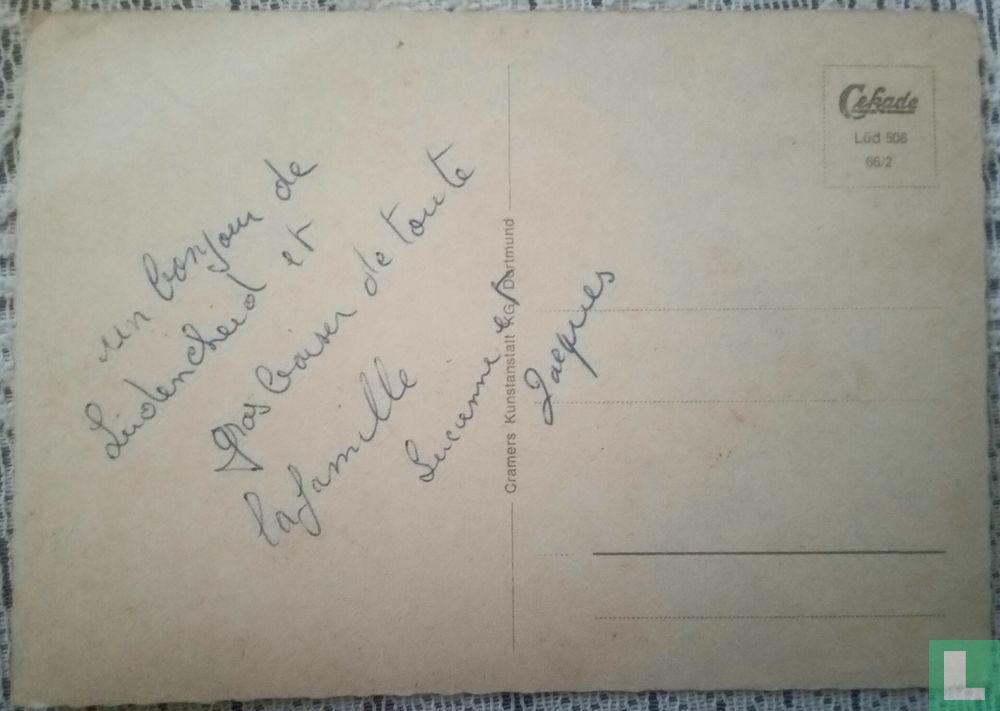 un bonjour de
Ludencheid et
gros baiser de toute
la famille
Lucienne et
Jacques
Cramers Kunstanstalt KG, Dortmund
Cekade
Lüd 506
66/2
L